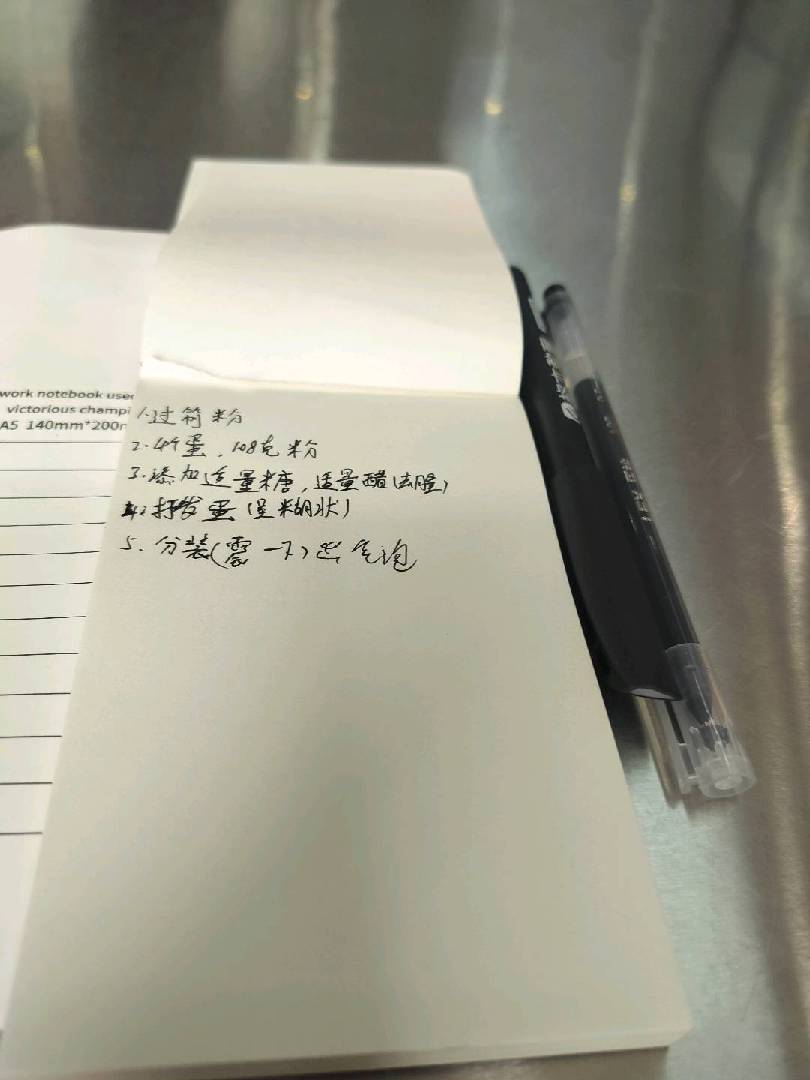 work notebook use
victorious champi
A5 140mm*200m
1.过筛粉
2.4个蛋,108克粉
3.添加适量糖,适量醋(去腥)
4.打发蛋(呈糊状)
5.分装(震一下)出气泡